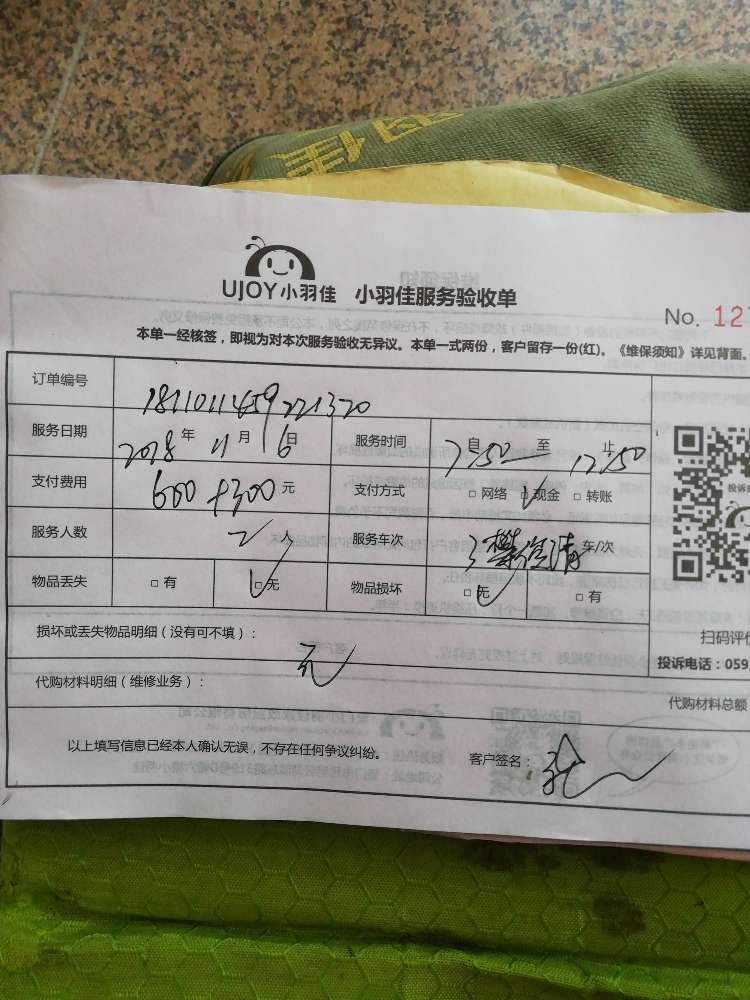 UJOY小羽佳 小羽佳服务验收单
No. 127
本单一经核签，即视为对本次服务验收无异议。本单一式两份，客户留存一份(红)。《维保须知》详见背面。
订单编号 1811011459221320
服务日期 2018年 11月 6日 服务时间 7:50 自 至 12:50 止
支付费用 600+300元 支付方式 □网络 □现金 □转账
服务人数 2人 服务车次 车/次
物品丢失 □有 □无 物品损坏 □无 □有
损坏或丢失物品明细（没有可不填）：
无
代购材料明细（维修业务）：
以上填写信息已经本人确认无误，不存在任何争议纠纷。 客户签名：
投诉
扫码评价
投诉电话：059
代购材料总额